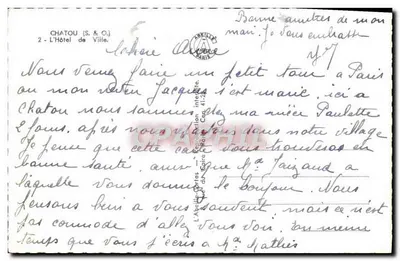 CHATOU (S. & O.)
2 - L'Hôtel de Ville.
Bonne année de mon
mari. Je vous embrasse
Chère
Nous venez faire un petit tour a Paris
ou mon neveu Jacques s'est marié. ici a
Chatou nous sommes chez ma nièce Paulette
2 jours. après nous dans notre village
Je pense que cette carte vous en
bonne santé. ainsi que Md a
laquelle vous donnez le bonjour. Nous
pensons bien a vous souvent. mais ce n'est
pas commode d'aller vous voir. en même
temps que vous j'écris a Md Mathis